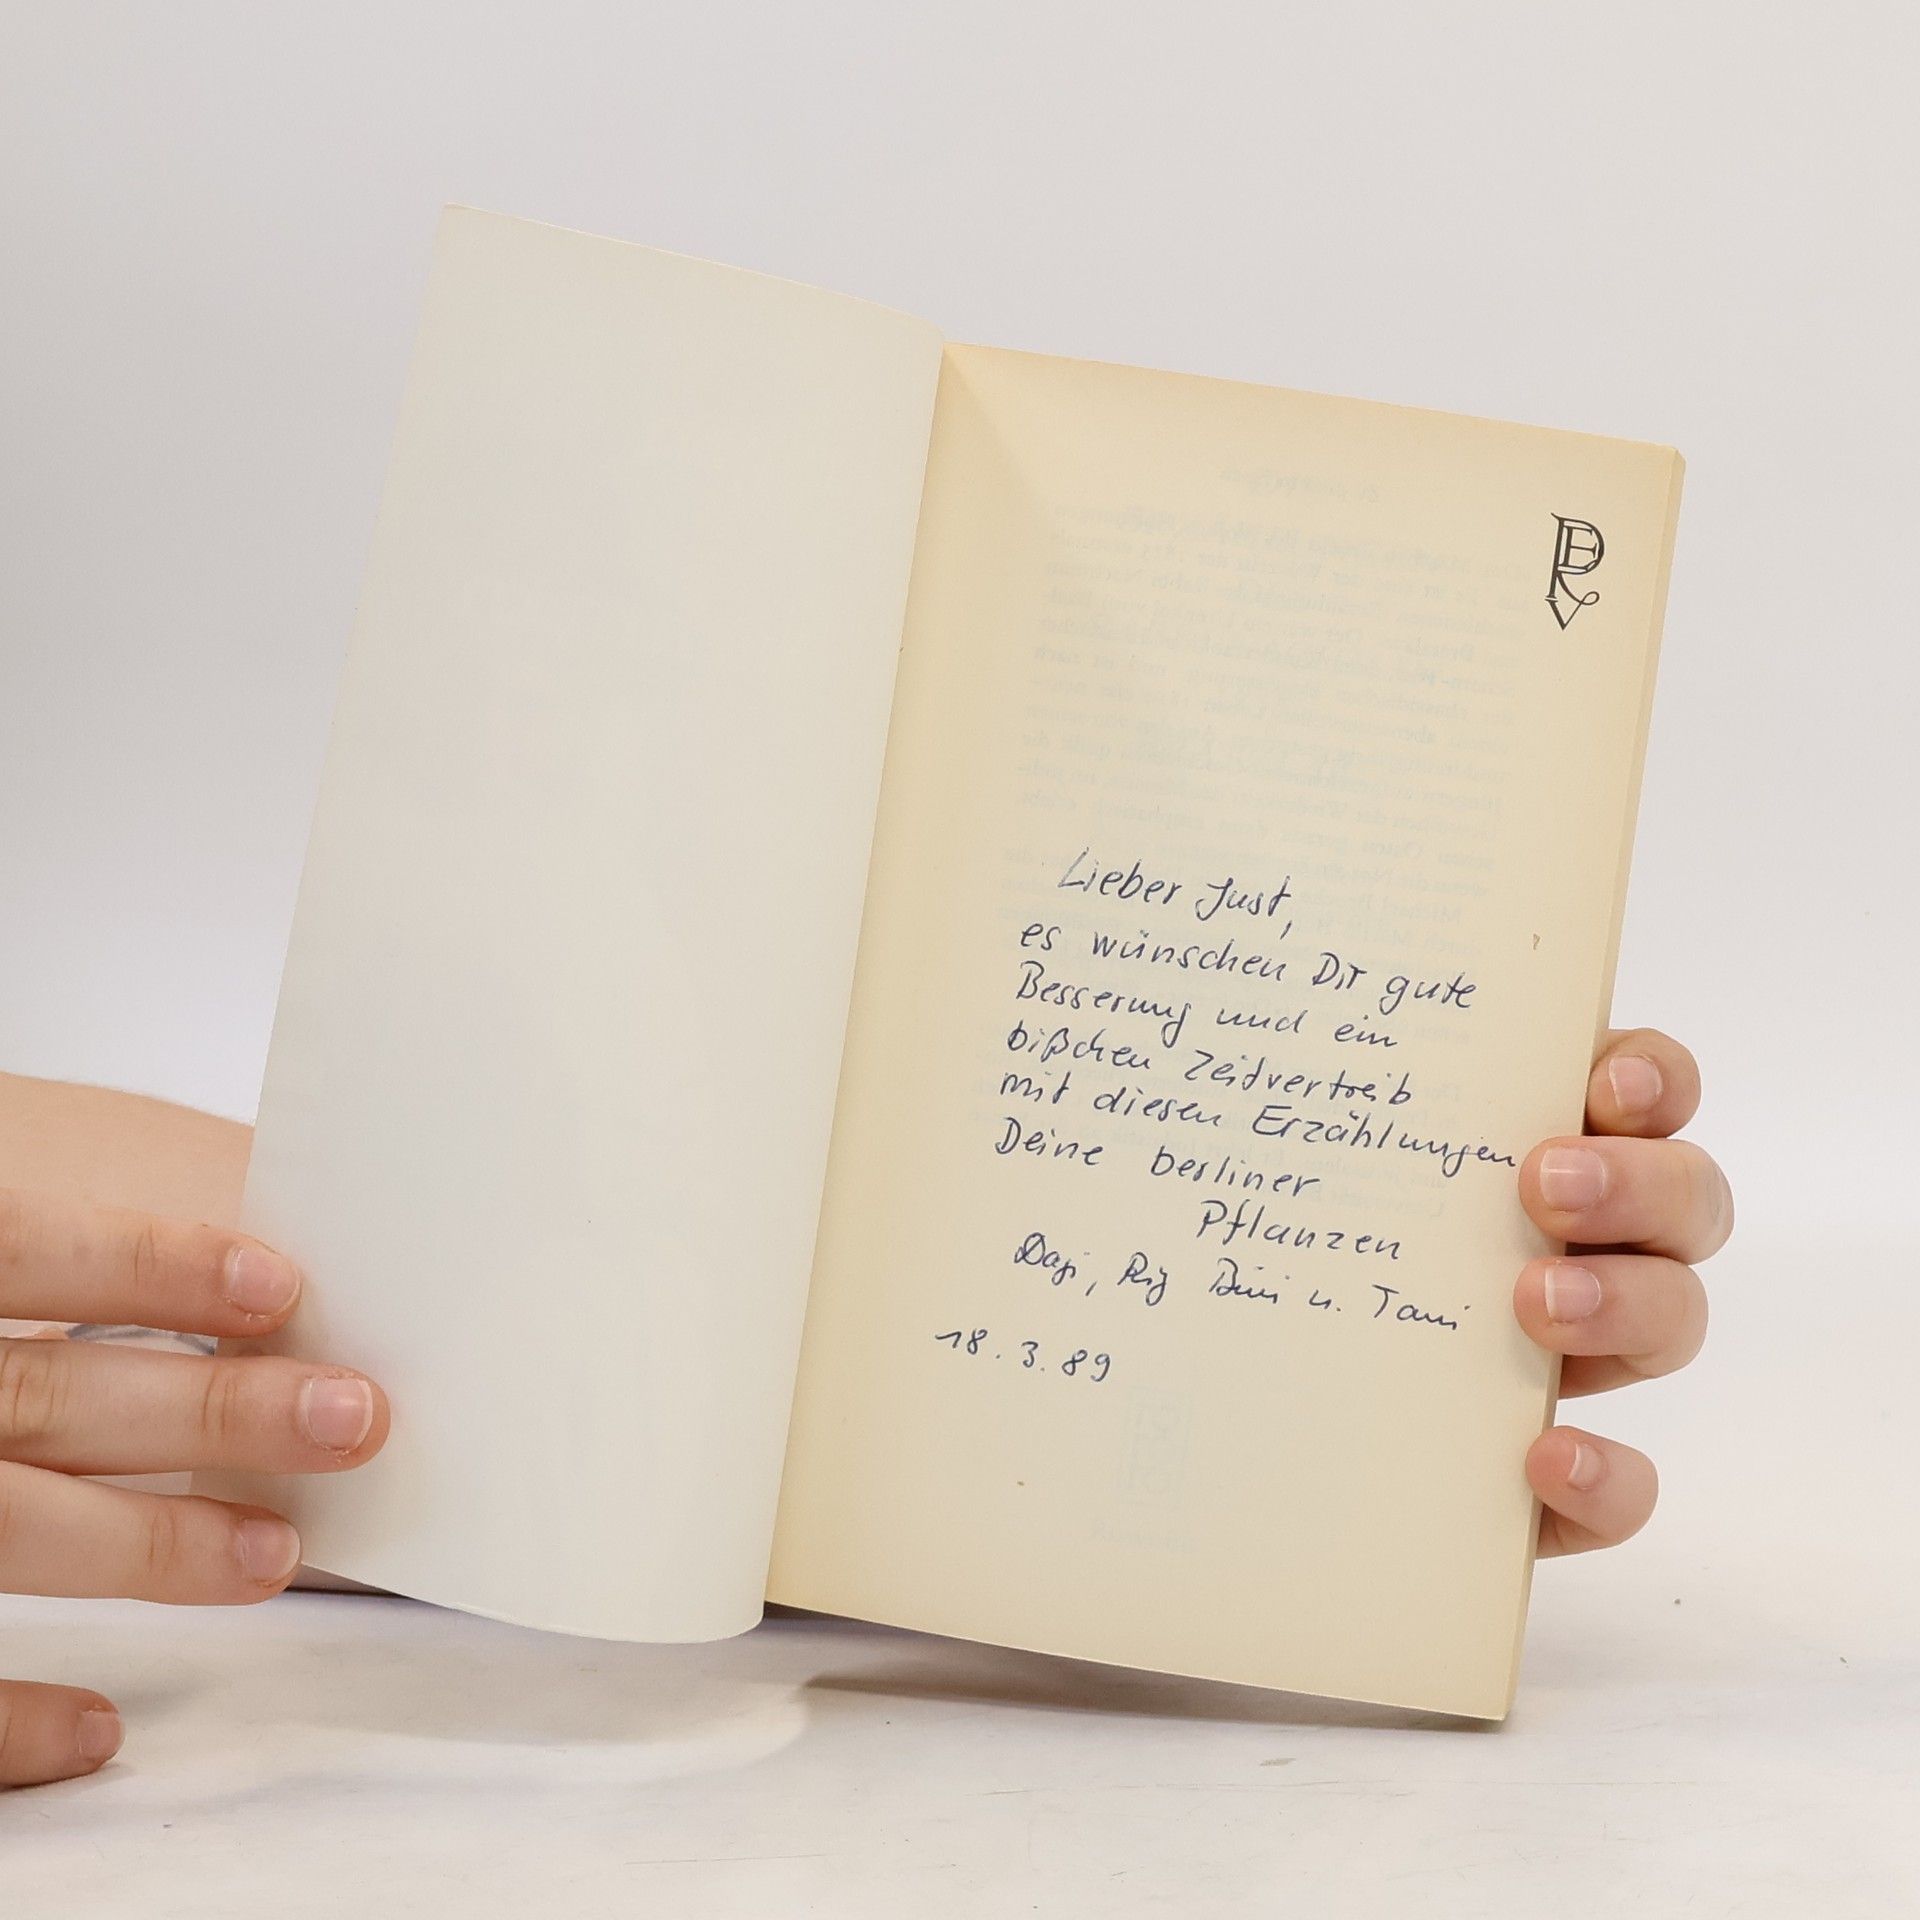 PEV
Lieber Just,
es wünschen Dir gute
Besserung und ein
bißchen Zeitvertreib
mit diesen Erzählungen
Deine berliner
Pflanzen
Dagi, Bini u. Tani
18.3.89